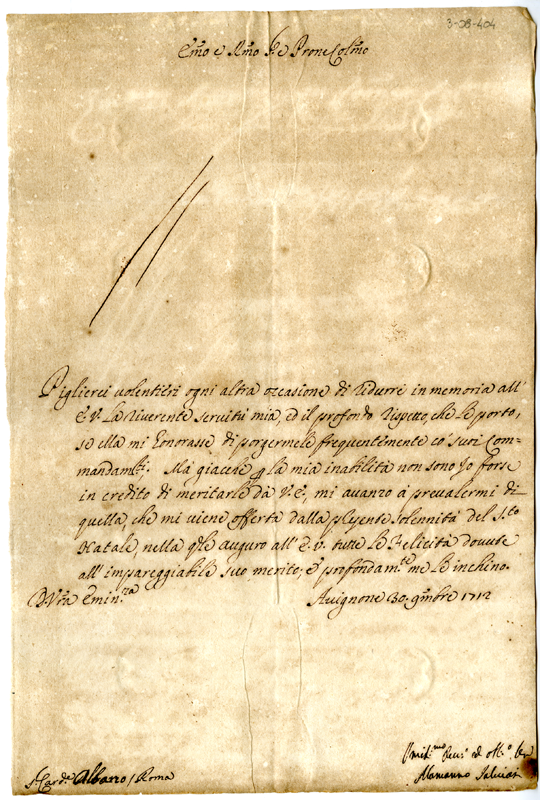 3-08-404
Emo e Rmo Sr e Prone Colmo
Piglierei volentieri ogni altra occasione di ridurre in memoria all'
E.V. la riverente servitù mia, ed il profondo rispetto, che le porto,
se ella mi honorasse di porgermele frequentemente co' suoi Com-
mandamti. Mà giacche p la mia inabilità non sono io forse
in credito di meritarle dà V.E., mi avanzo à prevalermi di
quella, che mi viene offerta dalla presente solennità del Sto
Natale, nella qle auguro all' E.V. tutte le felicità dovute
all' impareggiabile suo merito; e profondamte me le inchino.
D. Vra Eminza Avignone 30. 9mbre 1712
Sr Card. Albano / Roma
Umilmo Devo ed obo